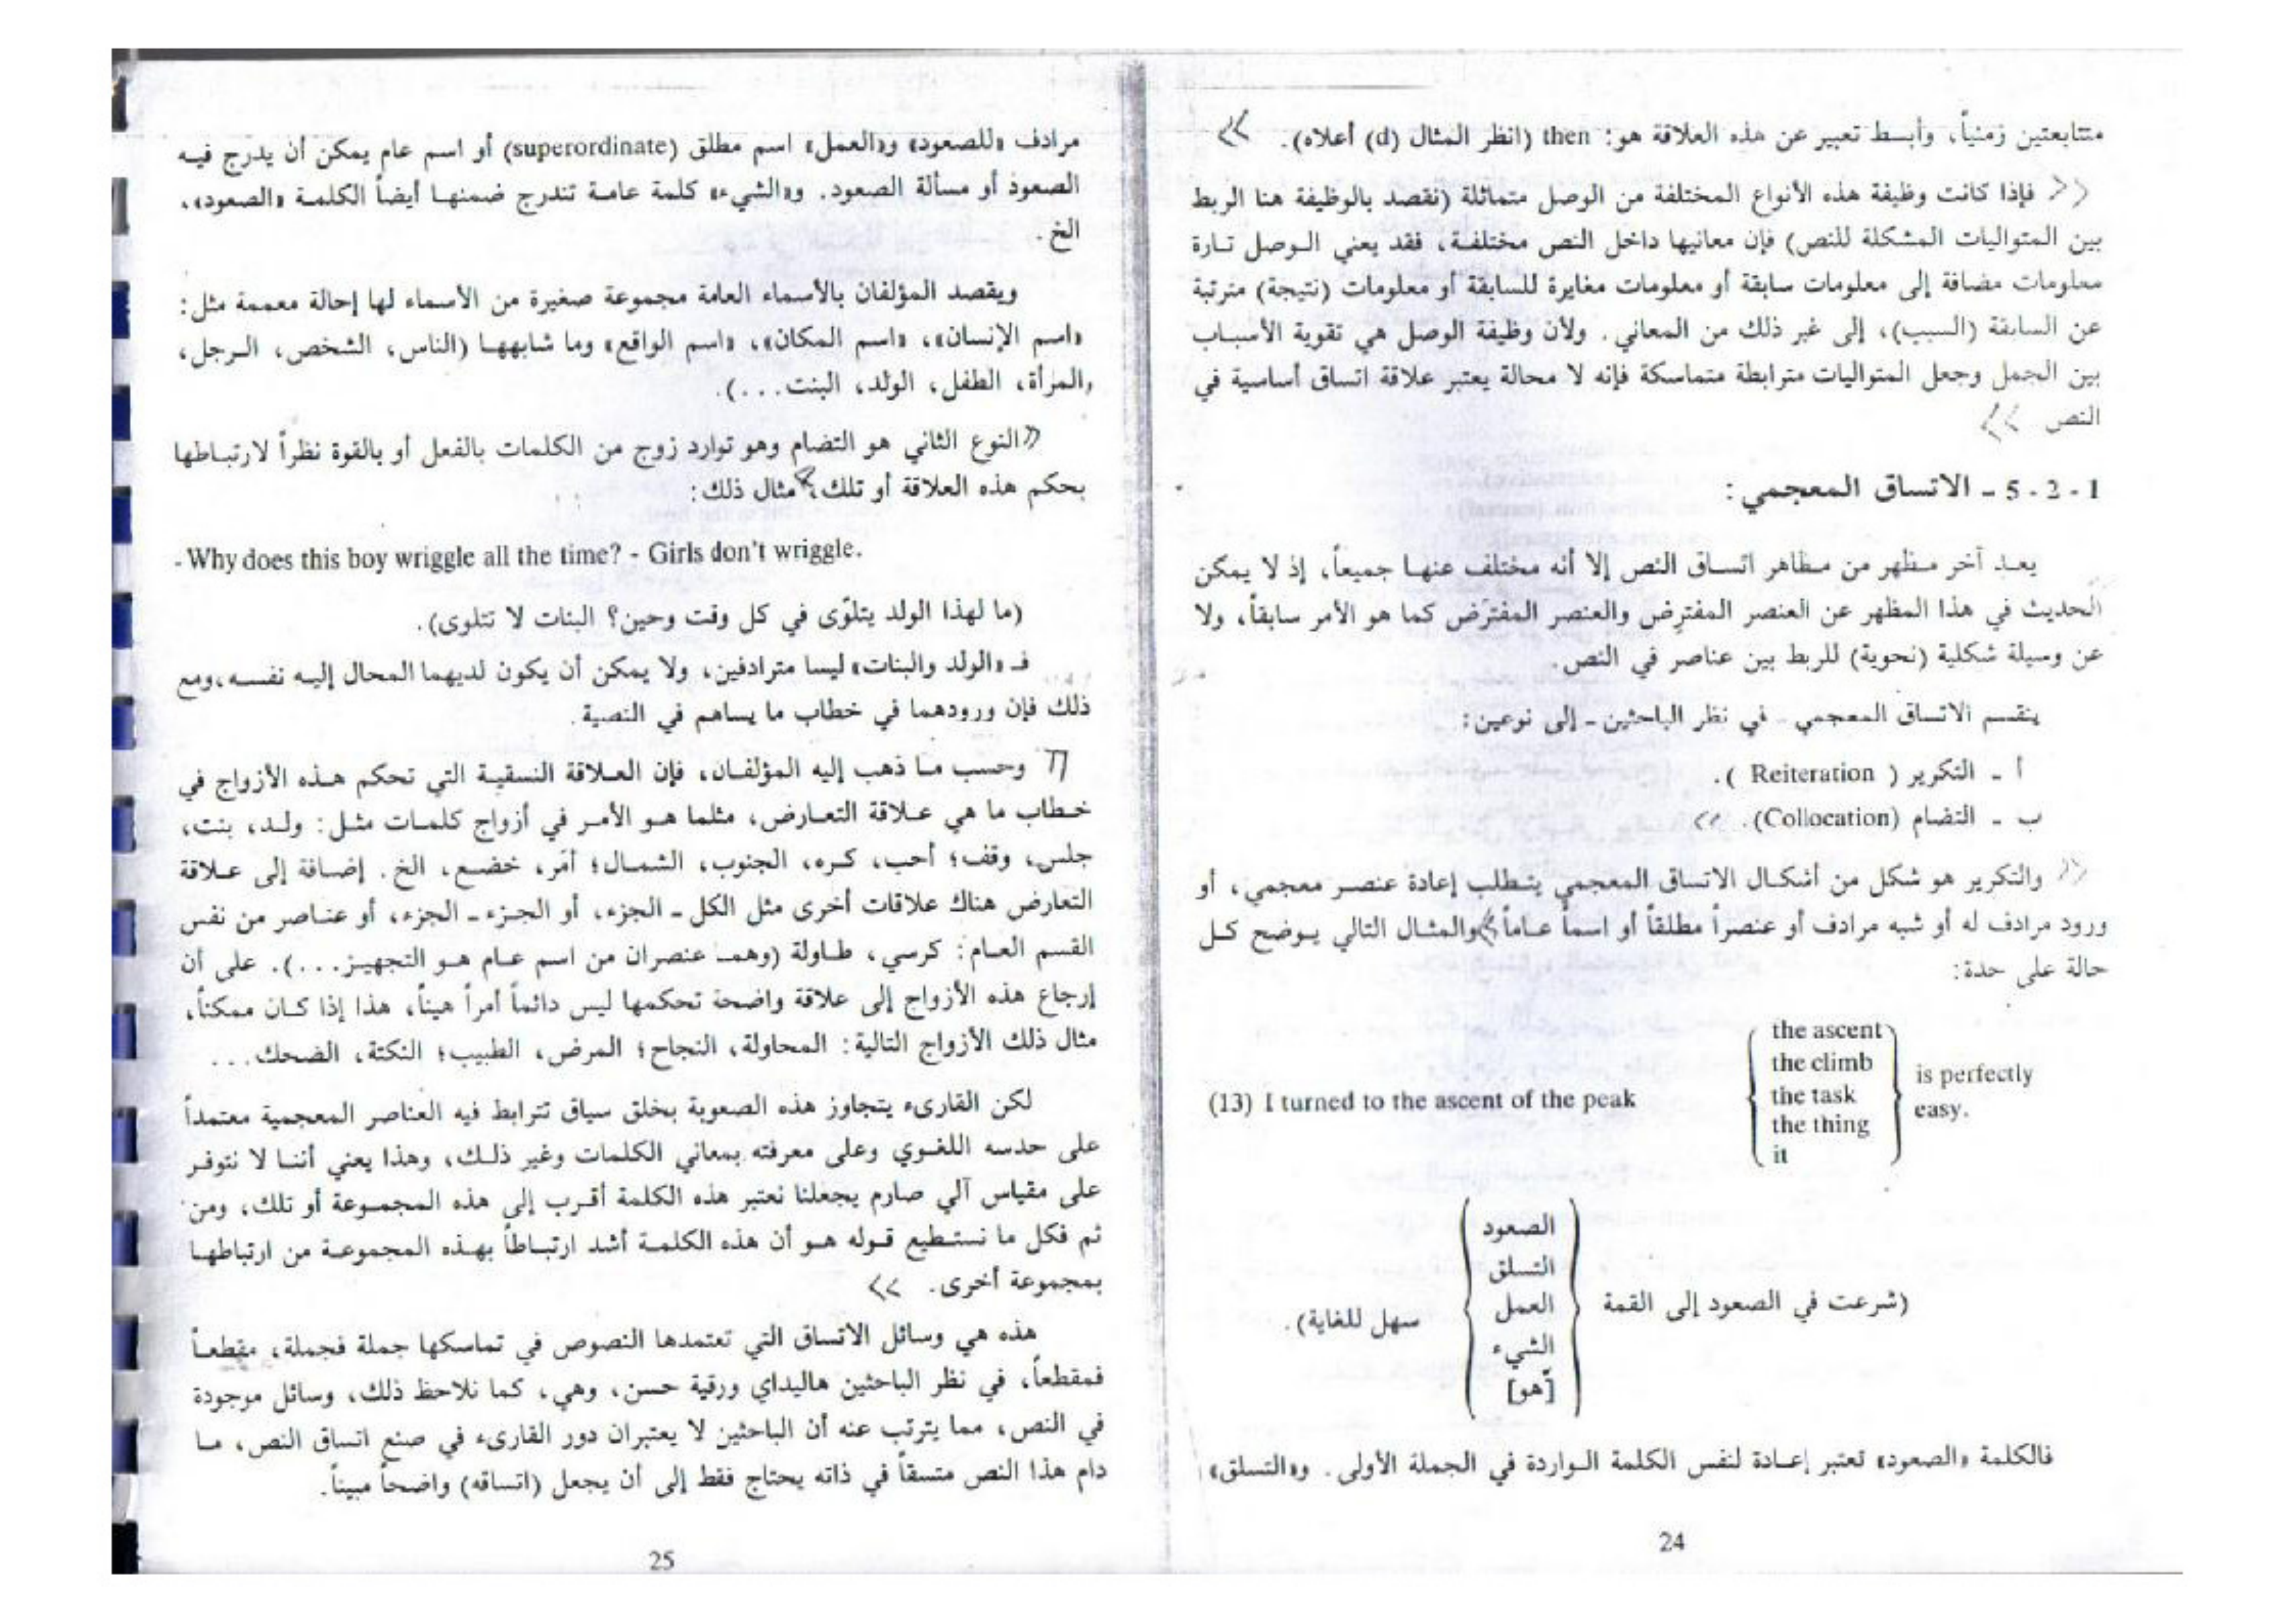 متتابعتين زمنياً، وأبسط تعبير عن هذه العلاقة هو: then (انظر المثال (d) أعلاه).
فإذا كانت وظيفة هذه الأنواع المختلفة من الوصل متماثلة (نقصد بالوظيفة هنا الربط
بين المتواليات المشكلة للنص) فإن معانيها داخل النص مختلفة، فقد يعني الوصل تارة
معلومات مضافة إلى معلومات سابقة أو معلومات مغايرة للسابقة أو معلومات (نتيجة) مترتبة
عن السابقة (السبب)، إلى غير ذلك من المعاني. ولأن وظيفة الوصل هي تقوية الأسباب
بين الجمل وجعل المتواليات مترابطة متماسكة فإنه لا محالة يعتبر علاقة اتساق أساسية في
النص
1 - 2 - 5 - الاتساق المعجمي:
يعد آخر مظهر من مظاهر اتساق النص إلا أنه مختلف عنها جميعاً، إذ لا يمكن
الحديث في هذا المظهر عن العنصر المفترِض والعنصر المفترَض كما هو الأمر سابقاً، ولا
عن وسيلة شكلية (نحوية) للربط بين عناصر في النص.
ينقسم الاتساق المعجمي - في نظر الباحثين - إلى نوعين:
أ - التكرير ( Reiteration ).
ب - التضام (Collocation).
والتكرير هو شكل من أشكال الاتساق المعجمي يتطلب إعادة عنصر معجمي، أو
ورود مرادف له أو شبه مرادف أو عنصراً مطلقاً أو اسماً عاماً والمثال التالي يوضح كل
حالة على حدة:
the ascent
the climb
(13) I turned to the ascent of the peak the task is perfectly easy.
the thing
it
الصعود
التسلق
(شرعت في الصعود إلى القمة العمل سهل للغاية).
الشيء
[هو]
فالكلمة «الصعود» تعتبر إعادة لنفس الكلمة الواردة في الجملة الأولى. و«التسلق»
24
مرادف «للصعود» و«العمل» اسم مطلق (superordinate) أو اسم عام يمكن أن يدرج فيه
الصعود أو مسألة الصعود. و«الشيء» كلمة عامة تندرج ضمنها أيضاً الكلمة «الصعود»،
الخ.
ويقصد المؤلفان بالأسماء العامة مجموعة صغيرة من الأسماء لها إحالة معممة مثل:
«اسم الإنسان»، «اسم المكان»، «اسم الواقع» وما شابهها (الناس، الشخص، الرجل،
والمرأة، الطفل، الولد، البنت...).
«النوع الثاني هو التضام وهو توارد زوج من الكلمات بالفعل أو بالقوة نظراً لارتباطها
بحكم هذه العلاقة أو تلك، مثال ذلك:
- Why does this boy wriggle all the time? - Girls don't wriggle.
(ما لهذا الولد يتلوّى في كل وقت وحين؟ البنات لا تتلوى).
فـ «الولد والبنات» ليسا مترادفين، ولا يمكن أن يكون لديهما المحال إليه نفسه، ومع
ذلك فإن ورودهما في خطاب ما يساهم في النصية.
وحسب ما ذهب إليه المؤلفان، فإن العلاقة النسقية التي تحكم هذه الأزواج في
خطاب ما هي علاقة التعارض، مثلما هو الأمر في أزواج كلمات مثل: ولد، بنت،
جلس، وقف؛ أحب، كره، الجنوب، الشمال؛ أمَر، خضع، الخ. إضافة إلى علاقة
التعارض هناك علاقات أخرى مثل الكل - الجزء، أو الجزء - الجزء، أو عناصر من نفس
القسم العام: كرسي، طاولة (وهما عنصران من اسم عام هو التجهيز...). على أن
إرجاع هذه الأزواج إلى علاقة واضحة تحكمها ليس دائماً أمراً هيناً، هذا إذا كان ممكناً،
مثال ذلك الأزواج التالية: المحاولة، النجاح؛ المرض، الطبيب؛ النكتة، الضحك...
لكن القارىء يتجاوز هذه الصعوبة بخلق سياق تترابط فيه العناصر المعجمية معتمداً
على حدسه اللغوي وعلى معرفته بمعاني الكلمات وغير ذلك، وهذا يعني أننا لا نتوفر
على مقياس آلي صارم يجعلنا نعتبر هذه الكلمة أقرب إلى هذه المجموعة أو تلك، ومن
ثم فكل ما نستطيع قوله هو أن هذه الكلمة أشد ارتباطاً بهذه المجموعة من ارتباطها
بمجموعة أخرى.
هذه هي وسائل الاتساق التي تعتمدها النصوص في تماسكها جملة فجملة، مقطعاً
فمقطعاً، في نظر الباحثين هاليداي ورقية حسن، وهي، كما نلاحظ ذلك، وسائل موجودة
في النص، مما يترتب عنه أن الباحثين لا يعتبران دور القارىء في صنع اتساق النص، ما
دام هذا النص متسقاً في ذاته يحتاج فقط إلى أن يجعل (اتساقه) واضحاً مبيناً.
25